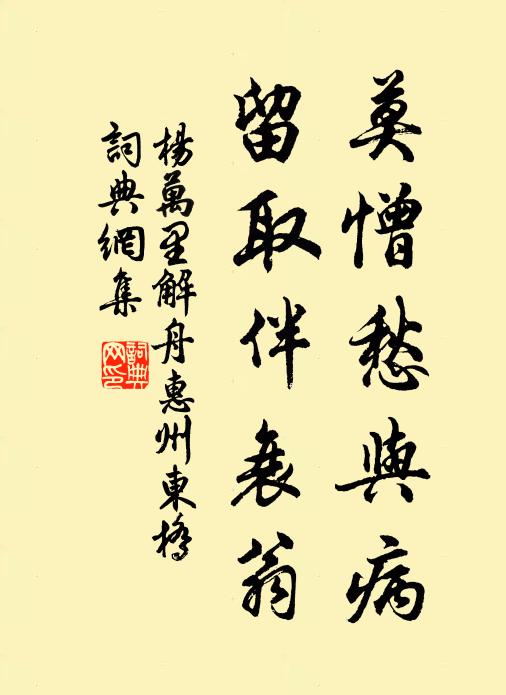 莫憎愁與病
留取伴衰翁
楊萬里解舟惠州東橋
詞典網集
詞典網印